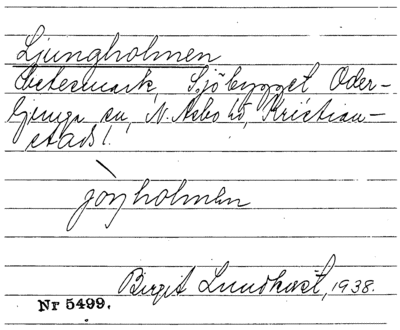 Ljungholmen
Betesmark, Sjöbygget Oder-
ljunga sn, N. Åsbo hd, Kristian-
stads l.
jöŋholmən
Birgit Lundkvist, 1938.
Nr 5499.